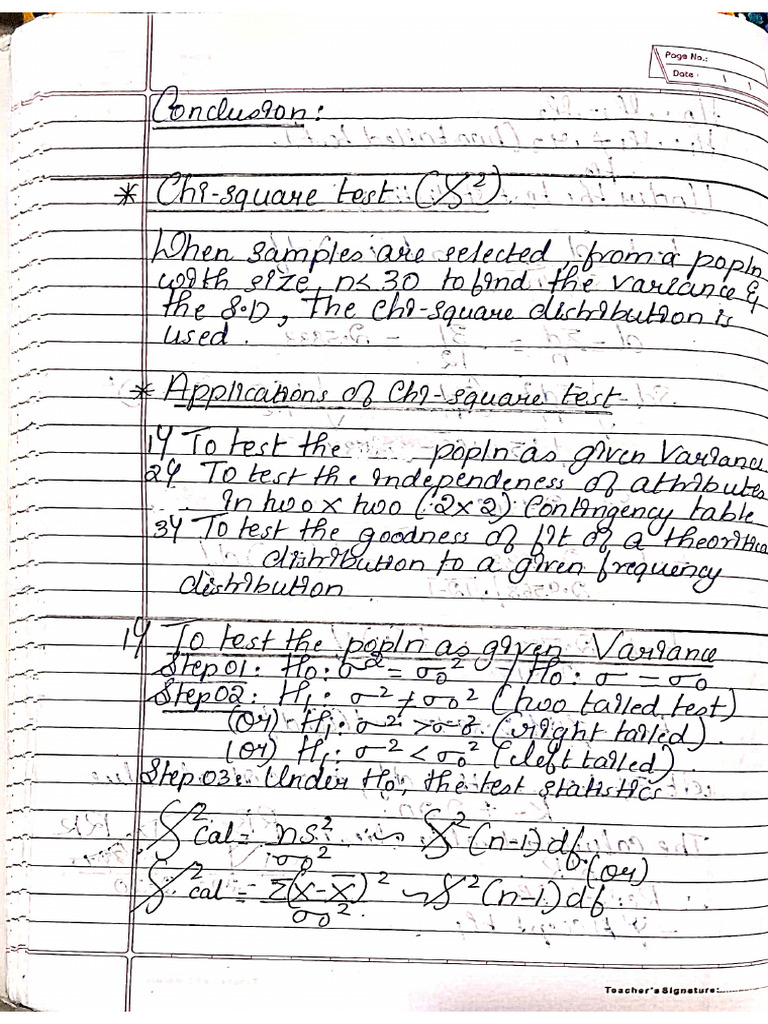 Page No.:
Date :
Conclusion:
* Chi-square test (χ²)
When samples are selected, from a popln
with size, n<30 to find the variance &
the S.D, The chi-square distribution is
used.
* Applications of Chi-square test
1) To test the popln as given Varianc
2) To test the independeness of attributes
in two x two (2x2) Contingency table
3) To test the goodness of fit of a theoritica
distribution to a given frequency
distribution
1) To test the popln as given Variance
Step 01: H₀: σ² = σ₀² / H₀: σ = σ₀
Step 02: H₁: σ² ≠ σ₀² (two tailed test)
(or) H₁: σ² > σ₀² (right tailed)
(or) H₁: σ² < σ₀² (left tailed)
Step 03: Under H₀, the test statistics
χ² cal = ns²/σ₀² ~ χ² (n-1) df (or)
χ² cal = Σ(x-x̄)²/σ₀² ~ χ² (n-1) df
Teacher's Signature: